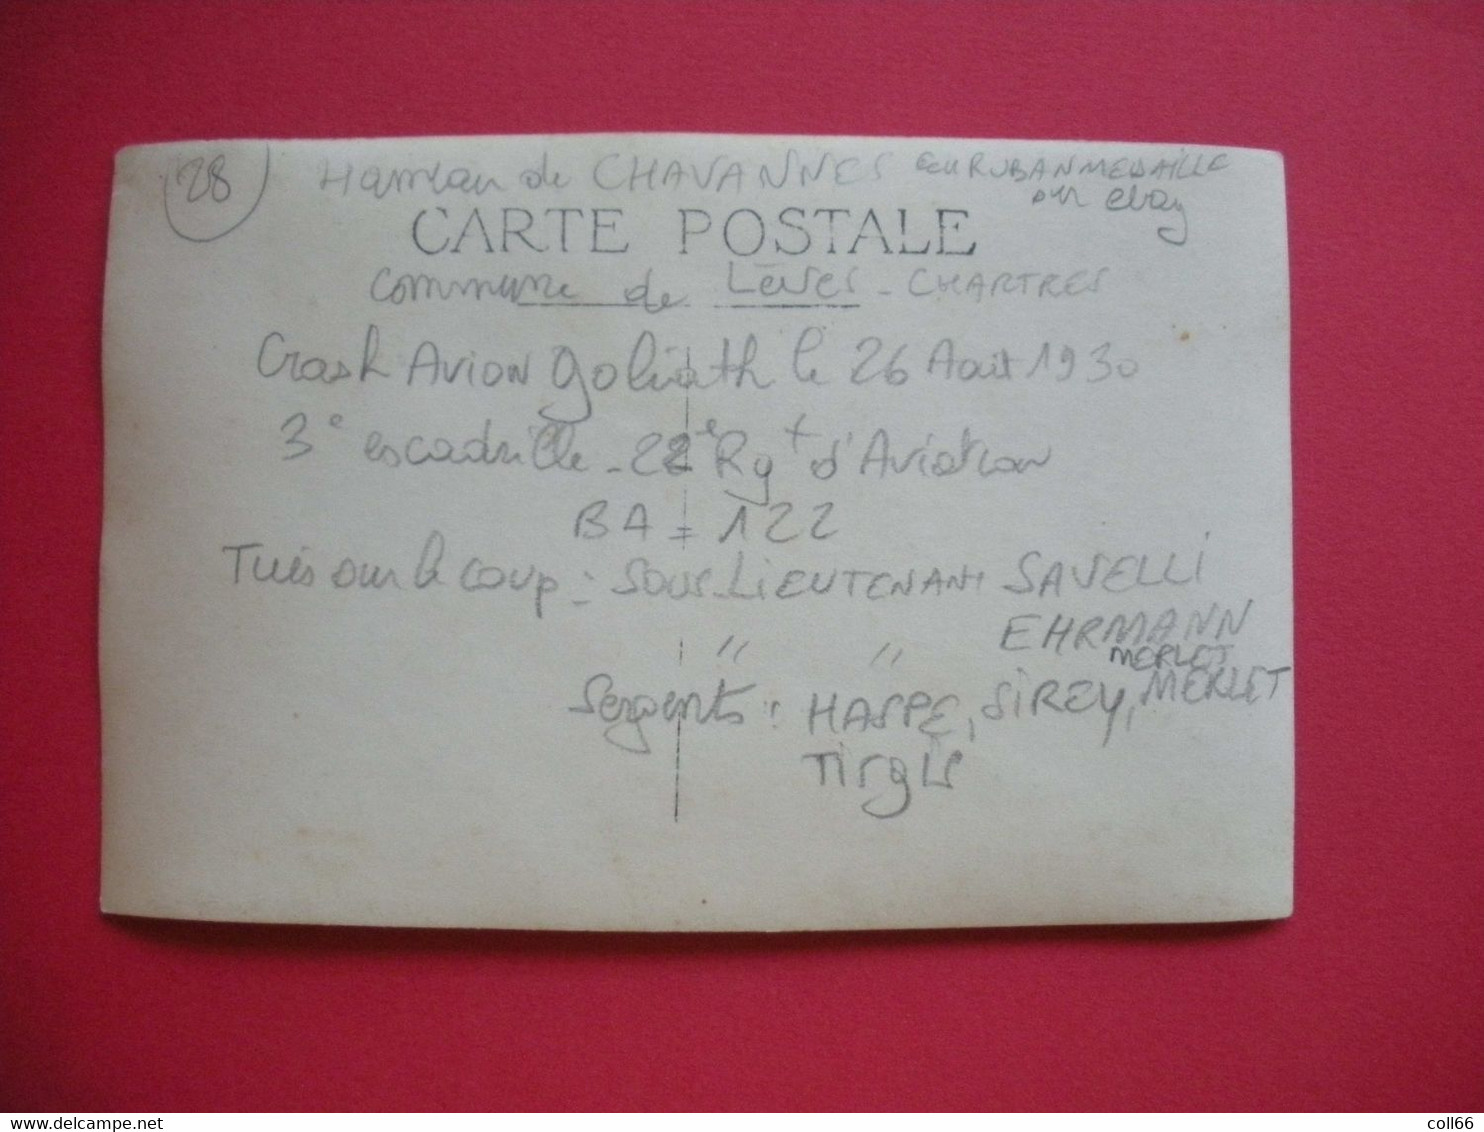 28 Hameau de CHAVANNES RUBANMEDAILLE
sur ebay
CARTE POSTALE
Commune de Lèves - CHARTRES
Crash Avion Goliath le 26 Août 1930
3e escadrille - 22e Rgt d'Aviation
BA = 122
Tués sur le coup : Sous-LIEUTENANT SAVELLI
" " EHRMANN
MERLET
Sergents : HASPE, SIREY, MERLET
TIRGIS
delcampe.net
coll66